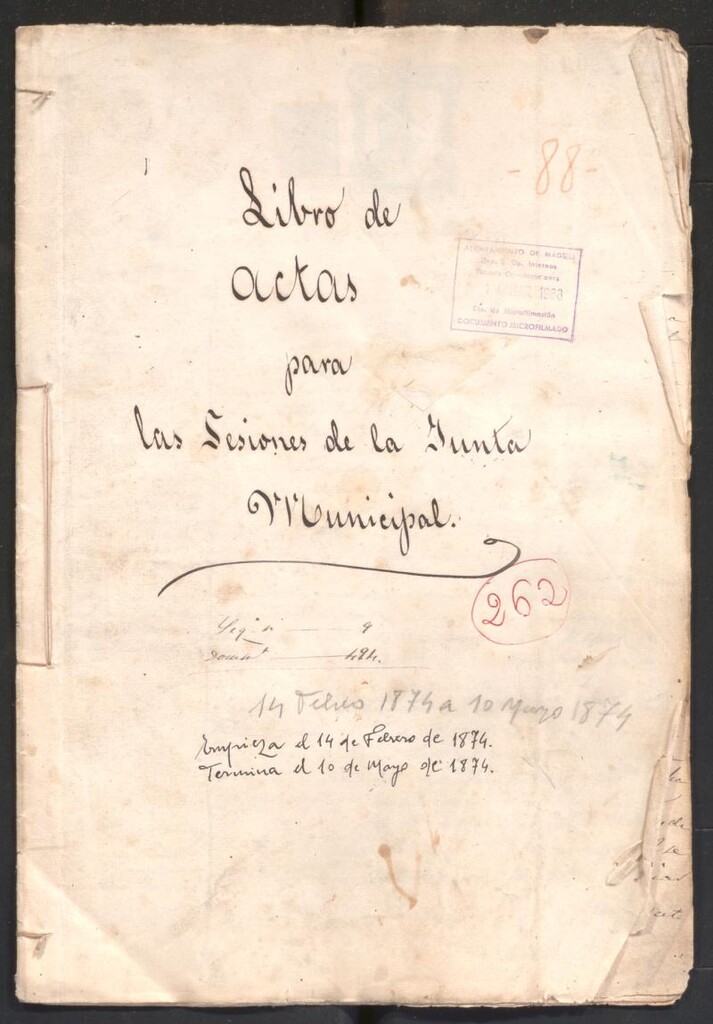 - 88 -
Libro de
actas
para
las Sesiones de la Junta
Municipal.
AYUNTAMIENTO DE MADRID
1988
DOCUMENTO MICROFILMADO
262
Leg. n 9
Docum.to 484.
14 Febro 1874 a 10 Mayo 1874
Empieza el 14 de Febrero de 1874.
Termina el 10 de Mayo de 1874.